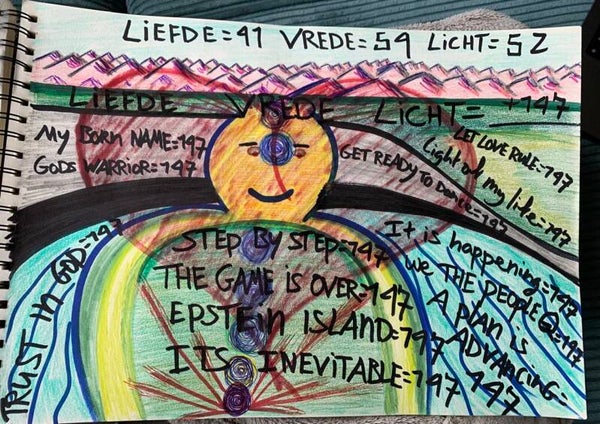 LiEFDE=41 VREDE=54 LiCHT=52
LiEFDE VREDE LiCHT= +147
MY BORN NAME=147
GODS WARRIOR=147
LET LOVE RULE=147
Light of my life=147
GET READY TO DANCE=147
TRUST IN GOD=147
STEP BY STEP=147
THE GAME IS OVER=147
EPSTEIN ISLAND=147
ITS INEVITABLE=147
It is happening=147
we THE PEOPLE Q=147
A PLAN IS
ADVANCING=
147